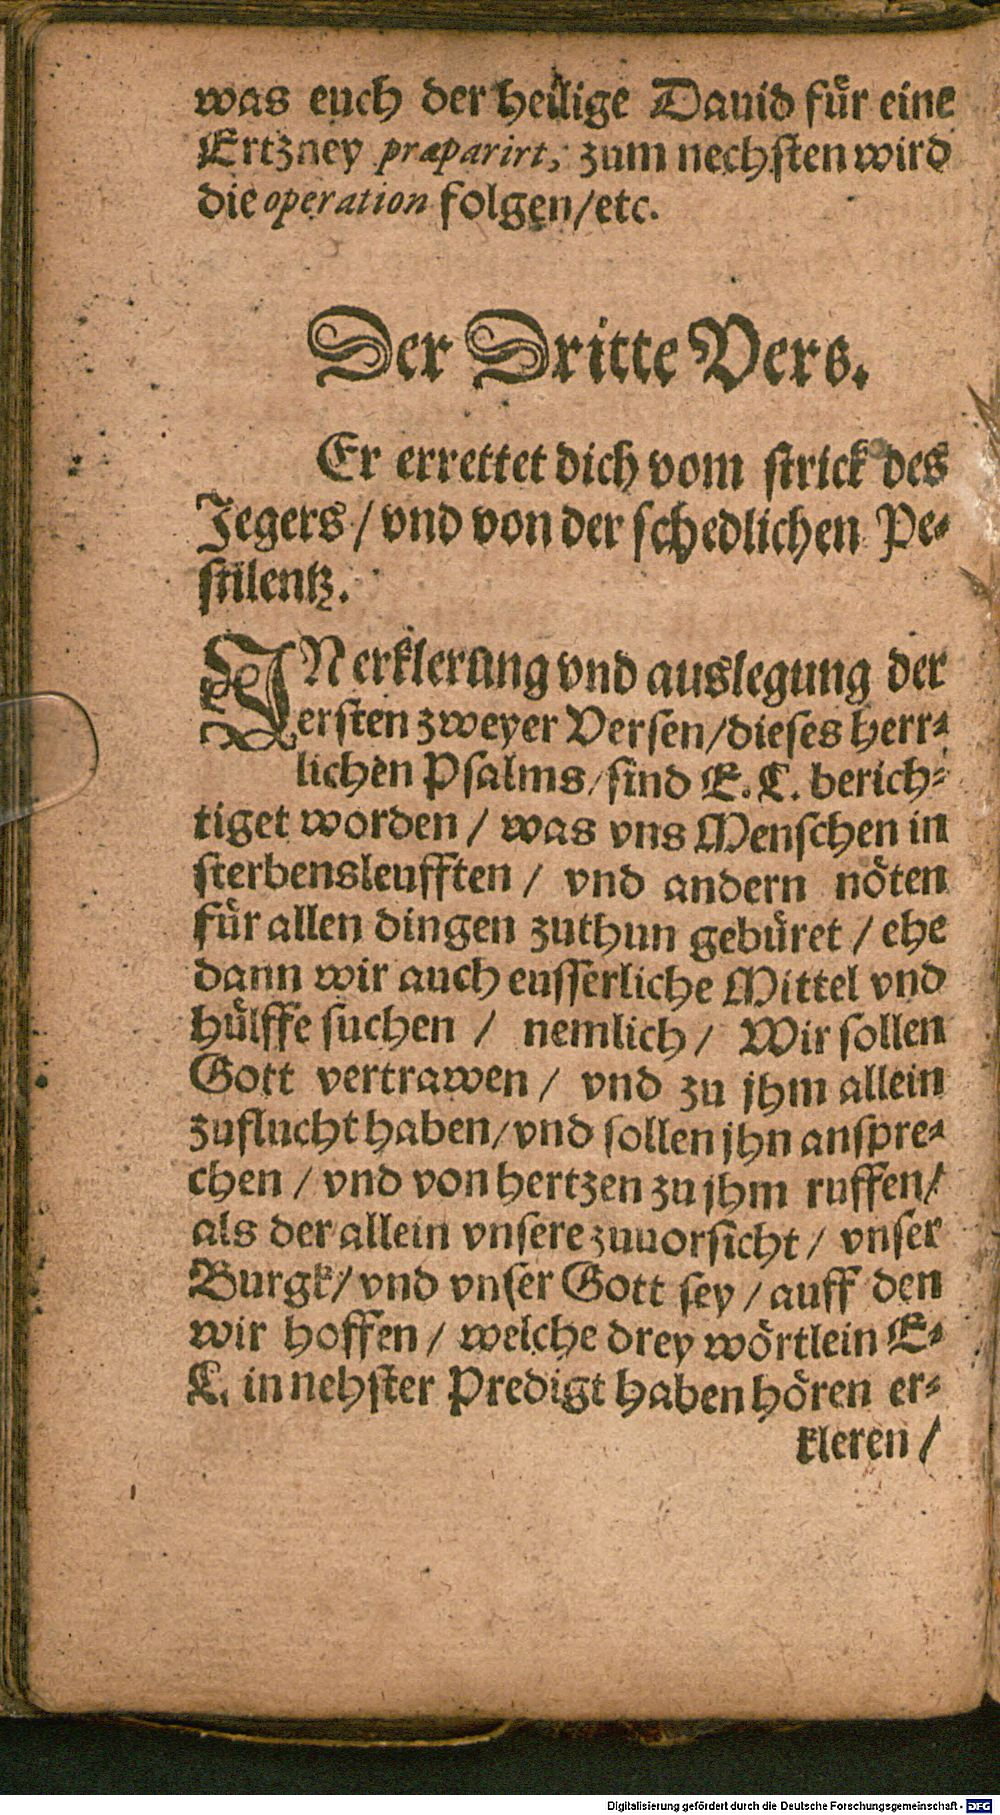 was euch der heilige Dauid für eine
Ertzney præparirt, zum nechsten wird
die operation folgen/etc.
Der Dritte Vers.
Er errettet dich vom strick des
Jegers / vnd von der schedlichen Pe-
stilentz.
IN erklerung vnd auslegung der
ersten zweyer Versen/dieses herr-
lichen Psalms/sind E. L. berich-
tiget worden / was vns Menschen in
sterbensleufften / vnd andern nöten
für allen dingen zuthun gebüret / ehe
dann wir auch eusserliche Mittel vnd
hülffe suchen / nemlich / Wir sollen
Gott vertrawen / vnd zu jhm allein
zuflucht haben/vnd sollen jhn anspre-
chen / vnd von hertzen zu jhm ruffen/
als der allein vnsere zuuorsicht / vnser
Burgk/ vnd vnser Gott sey / auff den
wir hoffen / welche drey wörtlein E-
L. in nehster Predigt haben hören er-
kleren /
Digitalisierung gefördert durch die Deutsche Forschungsgemeinschaft - DFG